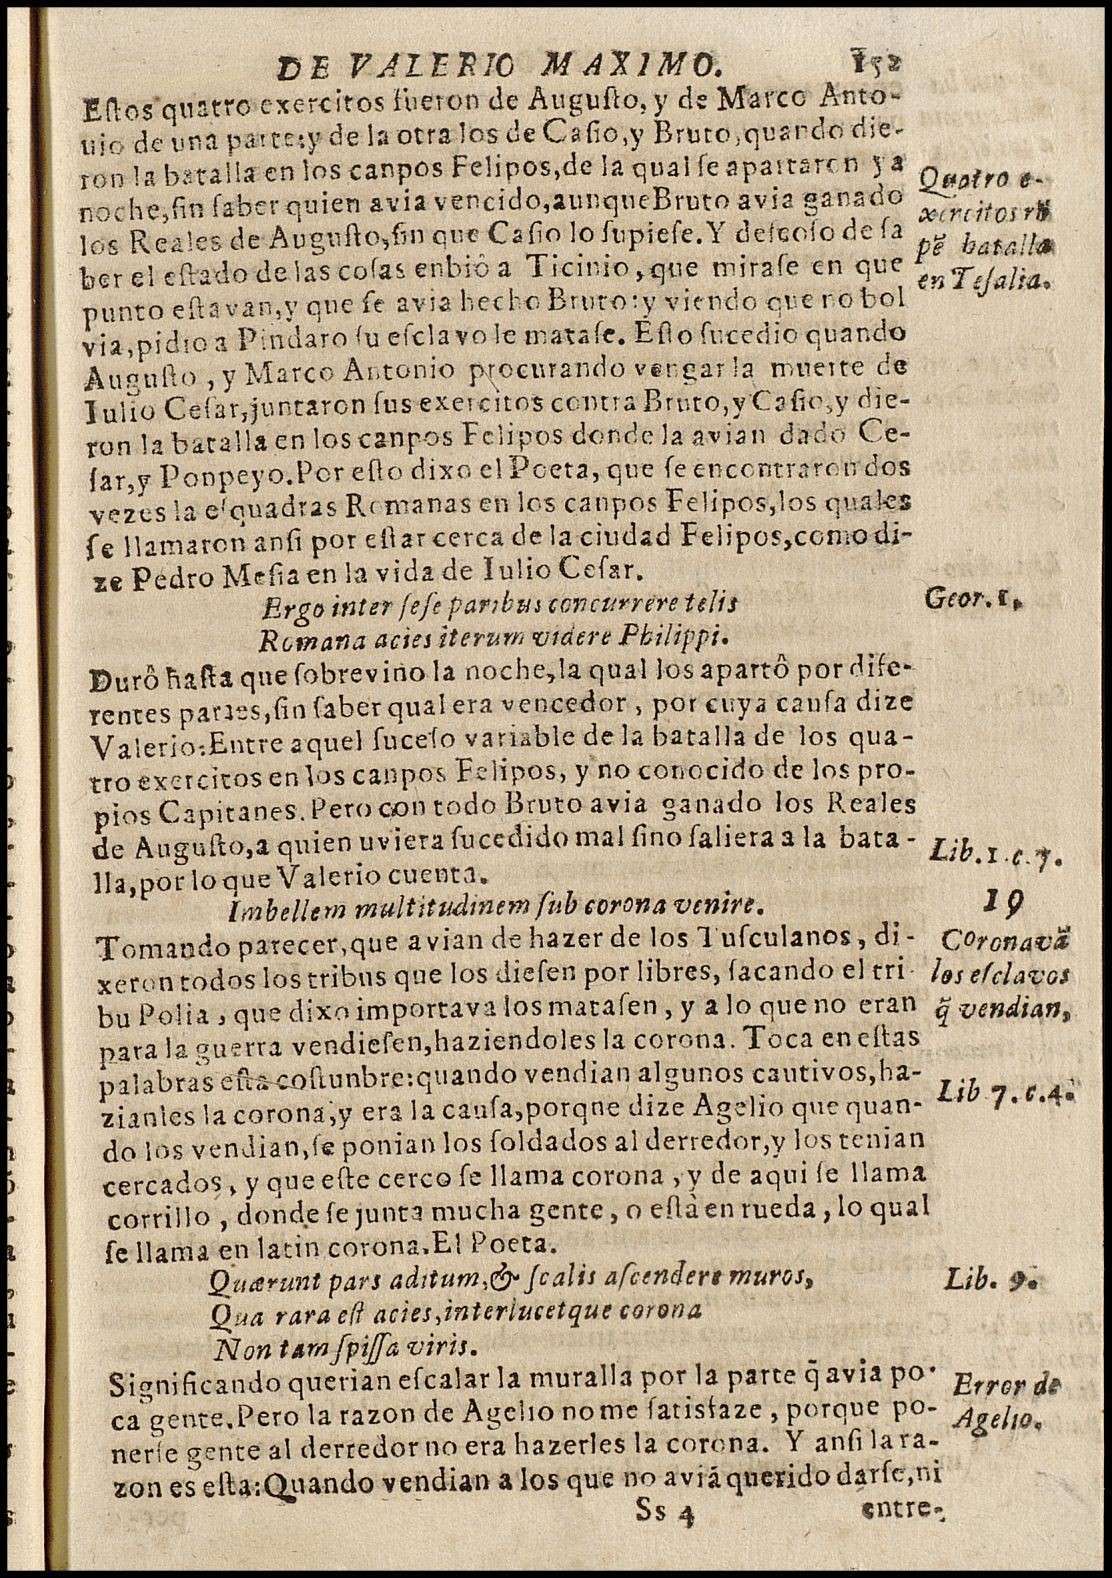 DE VALERIO MAXIMO. 152
Estos quatro exercitos fueron de Augusto, y de Marco Anto-
nio de una parte: y de la otra los de Casio, y Bruto, quando die-
ron la batalla en los canpos Felipos, de la qual se apartaron ya
noche, sin saber quien avia vencido, aunque Bruto avia ganado
los Reales de Augusto, sin que Casio lo supiese. Y deseoso de sa
ber el estado de las cosas enbiô a Ticinio, que mirase en que
punto estavan, y que se avia hecho Bruto: y viendo que no bol
via, pidio a Pindaro su esclavo le matase. Esto sucedio quando
Augusto, y Marco Antonio procurando vengar la muerte de
Iulio Cesar, juntaron sus exercitos contra Bruto, y Casio, y die-
ron la batalla en los canpos Felipos donde la avian dado Ce-
sar, y Ponpeyo. Por esto dixo el Poeta, que se encontraron dos
vezes la esquadras Romanas en los canpos Felipos, los quales
se llamaron ansi por estar cerca de la ciudad Felipos, como di-
ze Pedro Mesia en la vida de Iulio Cesar.
Ergo inter sese paribus concurrere telis
Romana acies iterum videre Philippi.
Durô hasta que sobrevino la noche, la qual los apartô por dife-
rentes partes, sin saber qual era vencedor, por cuya causa dize
Valerio: Entre aquel suceso variable de la batalla de los qua-
tro exercitos en los canpos Felipos, y no conocido de los pro-
pios Capitanes. Pero con todo Bruto avia ganado los Reales
de Augusto, a quien uviera sucedido mal sino saliera a la bata-
lla, por lo que Valerio cuenta.
Imbellem multitudinem sub corona venire.
Tomando parecer, que avian de hazer de los Tusculanos, di-
xeron todos los tribus que los diesen por libres, sacando el tri-
bu Polia, que dixo importava los matasen, y a lo que no eran
para la guerra vendiesen, haziendoles la corona. Toca en estas
palabras esta costunbre: quando vendian algunos cautivos, ha-
zianles la corona, y era la causa, porqne dize Agelio que quan-
do los vendian, se ponian los soldados al derredor, y los tenian
cercados, y que este cerco se llama corona, y de aqui se llama
corrillo, donde se junta mucha gente, o està en rueda, lo qual
se llama en latin corona. El Poeta.
Quærunt pars aditum, & scalis ascendere muros,
Qua rara est acies, interlucetque corona
Non tam spissa viris.
Significando querian escalar la muralla por la parte q̃ avia po-
ca gente. Pero la razon de Agelio no me satisfaze, porque po-
nerse gente al derredor no era hazerles la corona. Y ansi la ra-
zon es esta: Quando vendian a los que no aviã querido darse, ni
Ss 4 entre-
Quatro e-
xercitos rõ
pẽ batalla
en Tesalia.
Geor. 1.
Lib. 1. c. 7.
19
Coronavã
los esclavos
q̃ vendian,
Lib 7. c. 4.
Lib. 9.
Error de
Agelio.